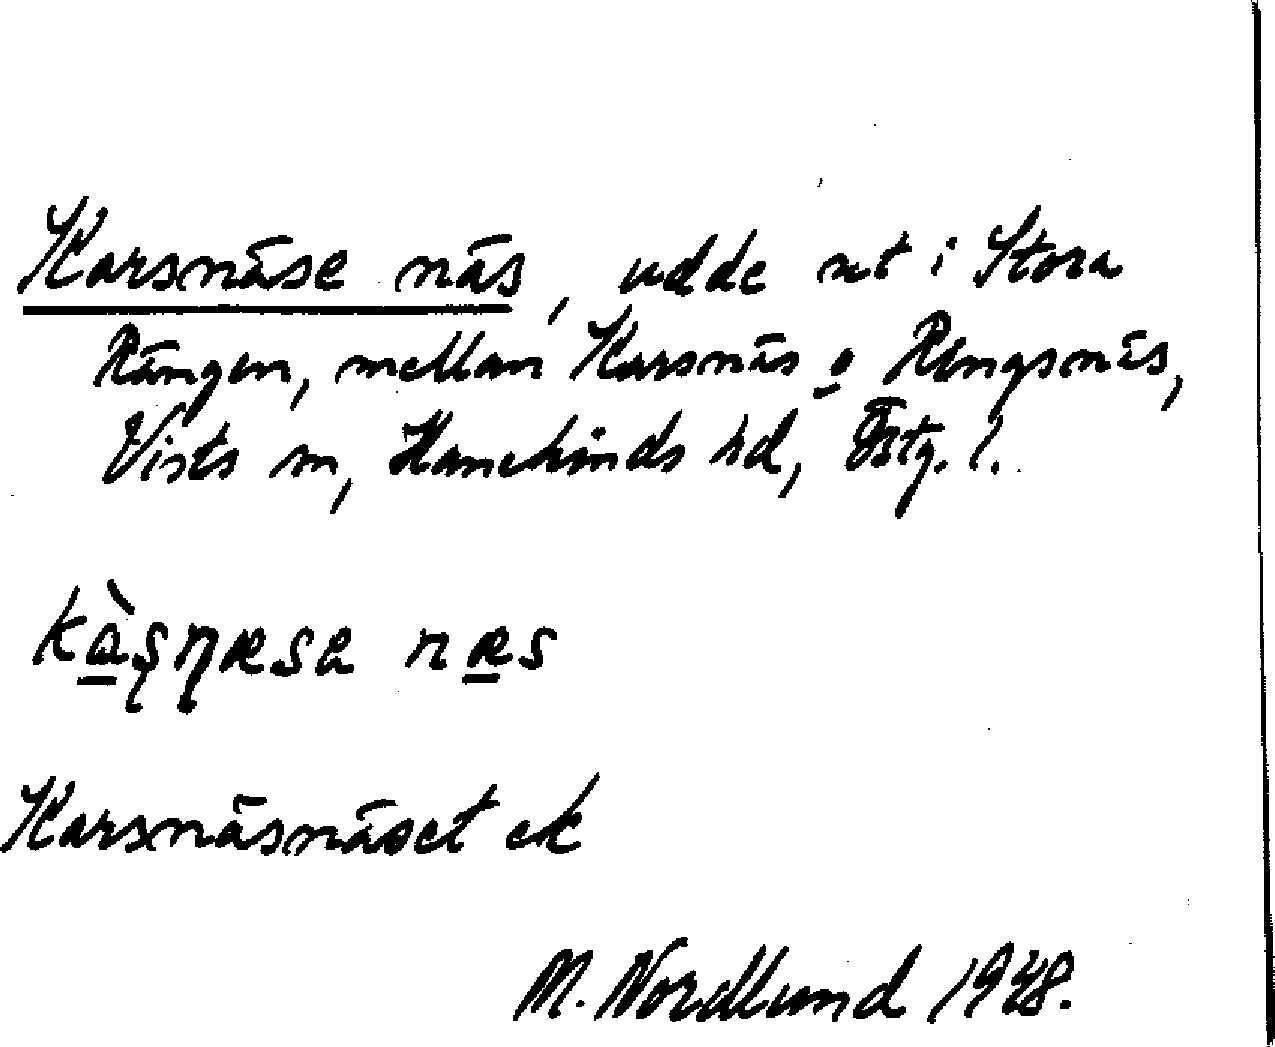 Karsnäse näs, udde ut i Stora
Rängen, mellan Karsnäs o Ringsnäs,
Vists sn, Hanekinds hd, Östg. l.
kàṣṇæsa næs
Karsnäsnäset ek
M. Nordlund 1948.